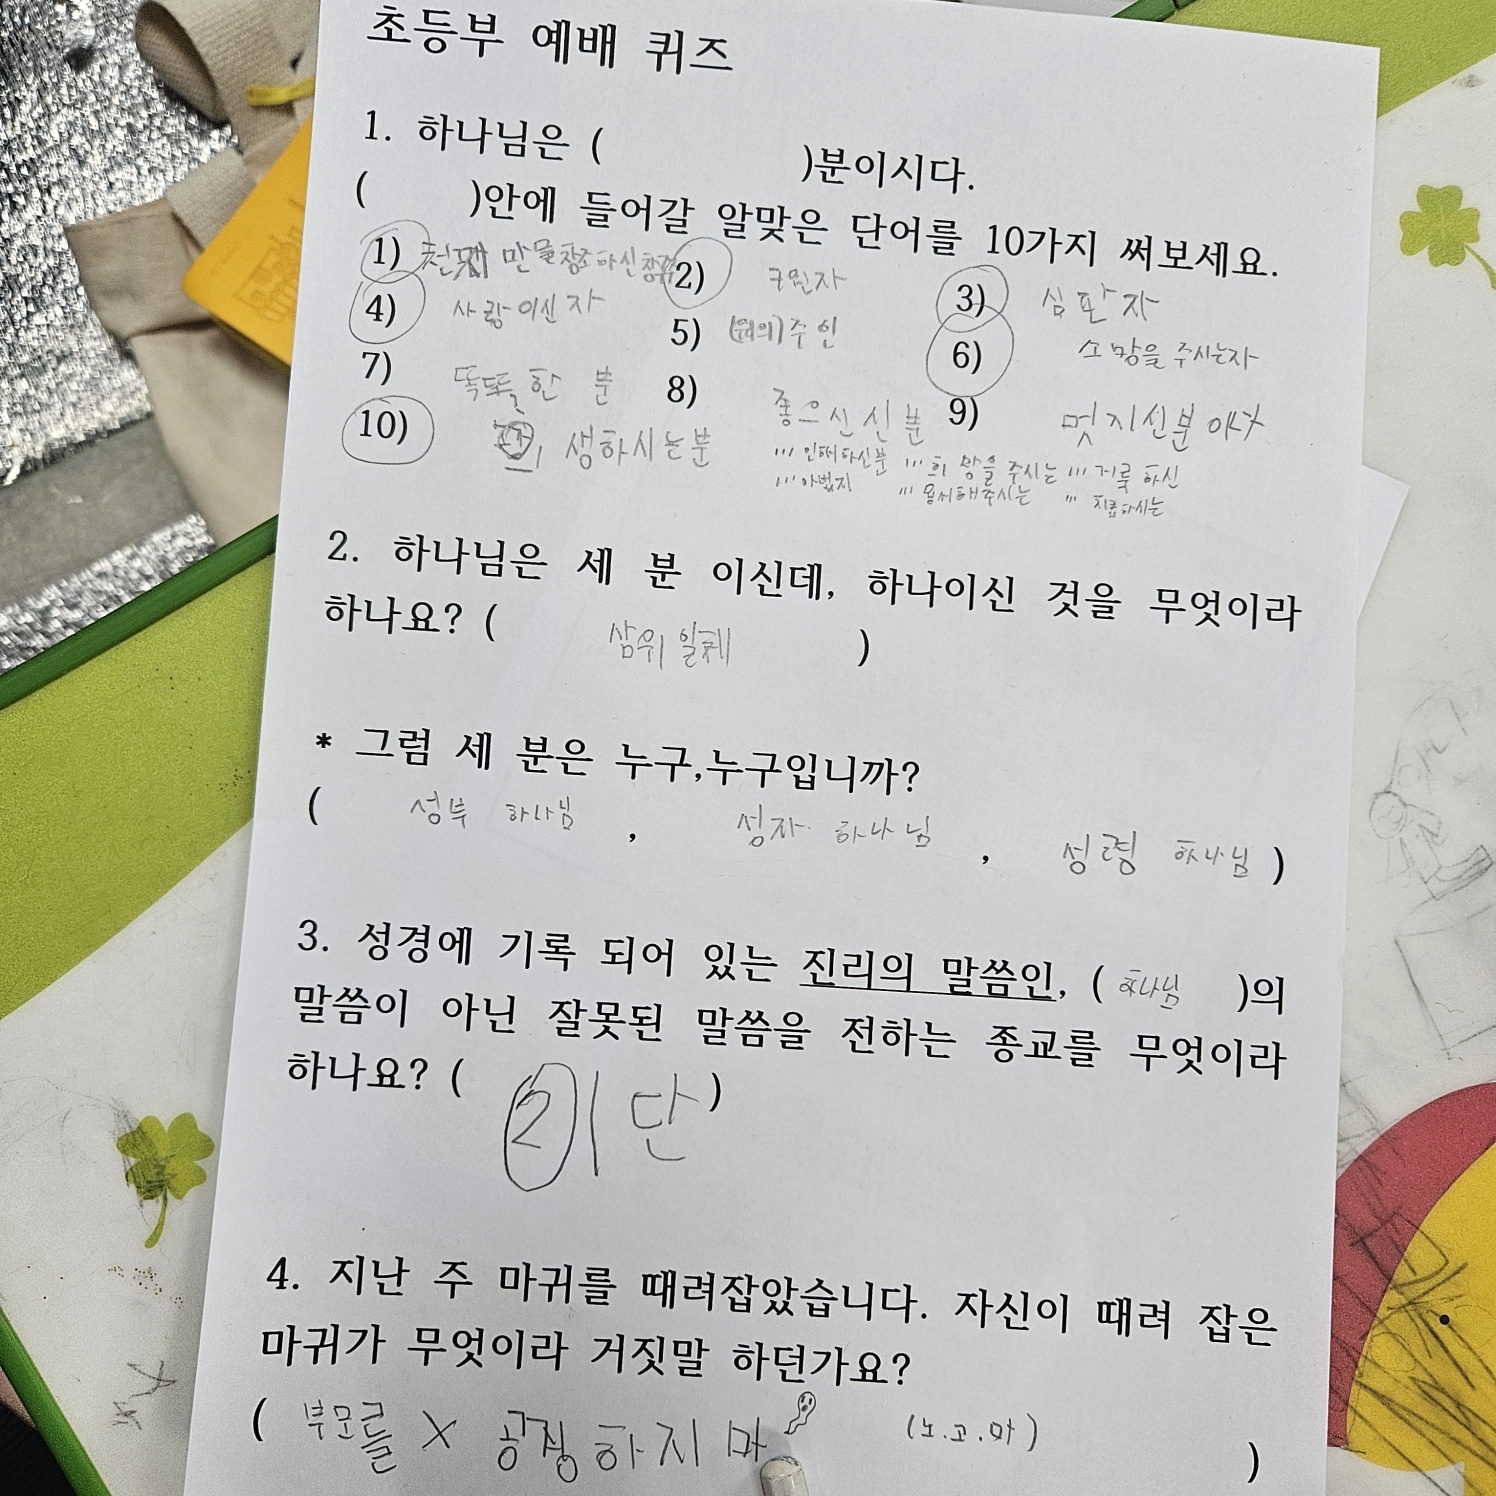 초등부 예배 퀴즈
1. 하나님은 ( )분이시다.
( )안에 들어갈 알맞은 단어를 10가지 써보세요.
1) 만물창조하신 2) 구원자 3) 심판자
4) 사랑이신자 5) 주인 6) 소망을 주시는자
7) 똑똑한 분 8) 좋으신 신분 9) 멋지신분
10) 생하시는분
''' 인내하신분 ''' 희망을 주시는 ''' 거룩하신
''' 아버지 ''' 용서해주시는 ''' 치료하시는
2. 하나님은 세 분 이신데, 하나이신 것을 무엇이라
하나요? ( 삼위일체 )
* 그럼 세 분은 누구,누구입니까?
( 성부 하나님 , 성자 하나님 , 성령 하나님 )
3. 성경에 기록 되어 있는 진리의 말씀인, ( 하나님 )의
말씀이 아닌 잘못된 말씀을 전하는 종교를 무엇이라
하나요? ( 2 이단 )
4. 지난 주 마귀를 때려잡았습니다. 자신이 때려 잡은
마귀가 무엇이라 거짓말 하던가요?
( 부모를 X 공경하지마 (노.고.마) )